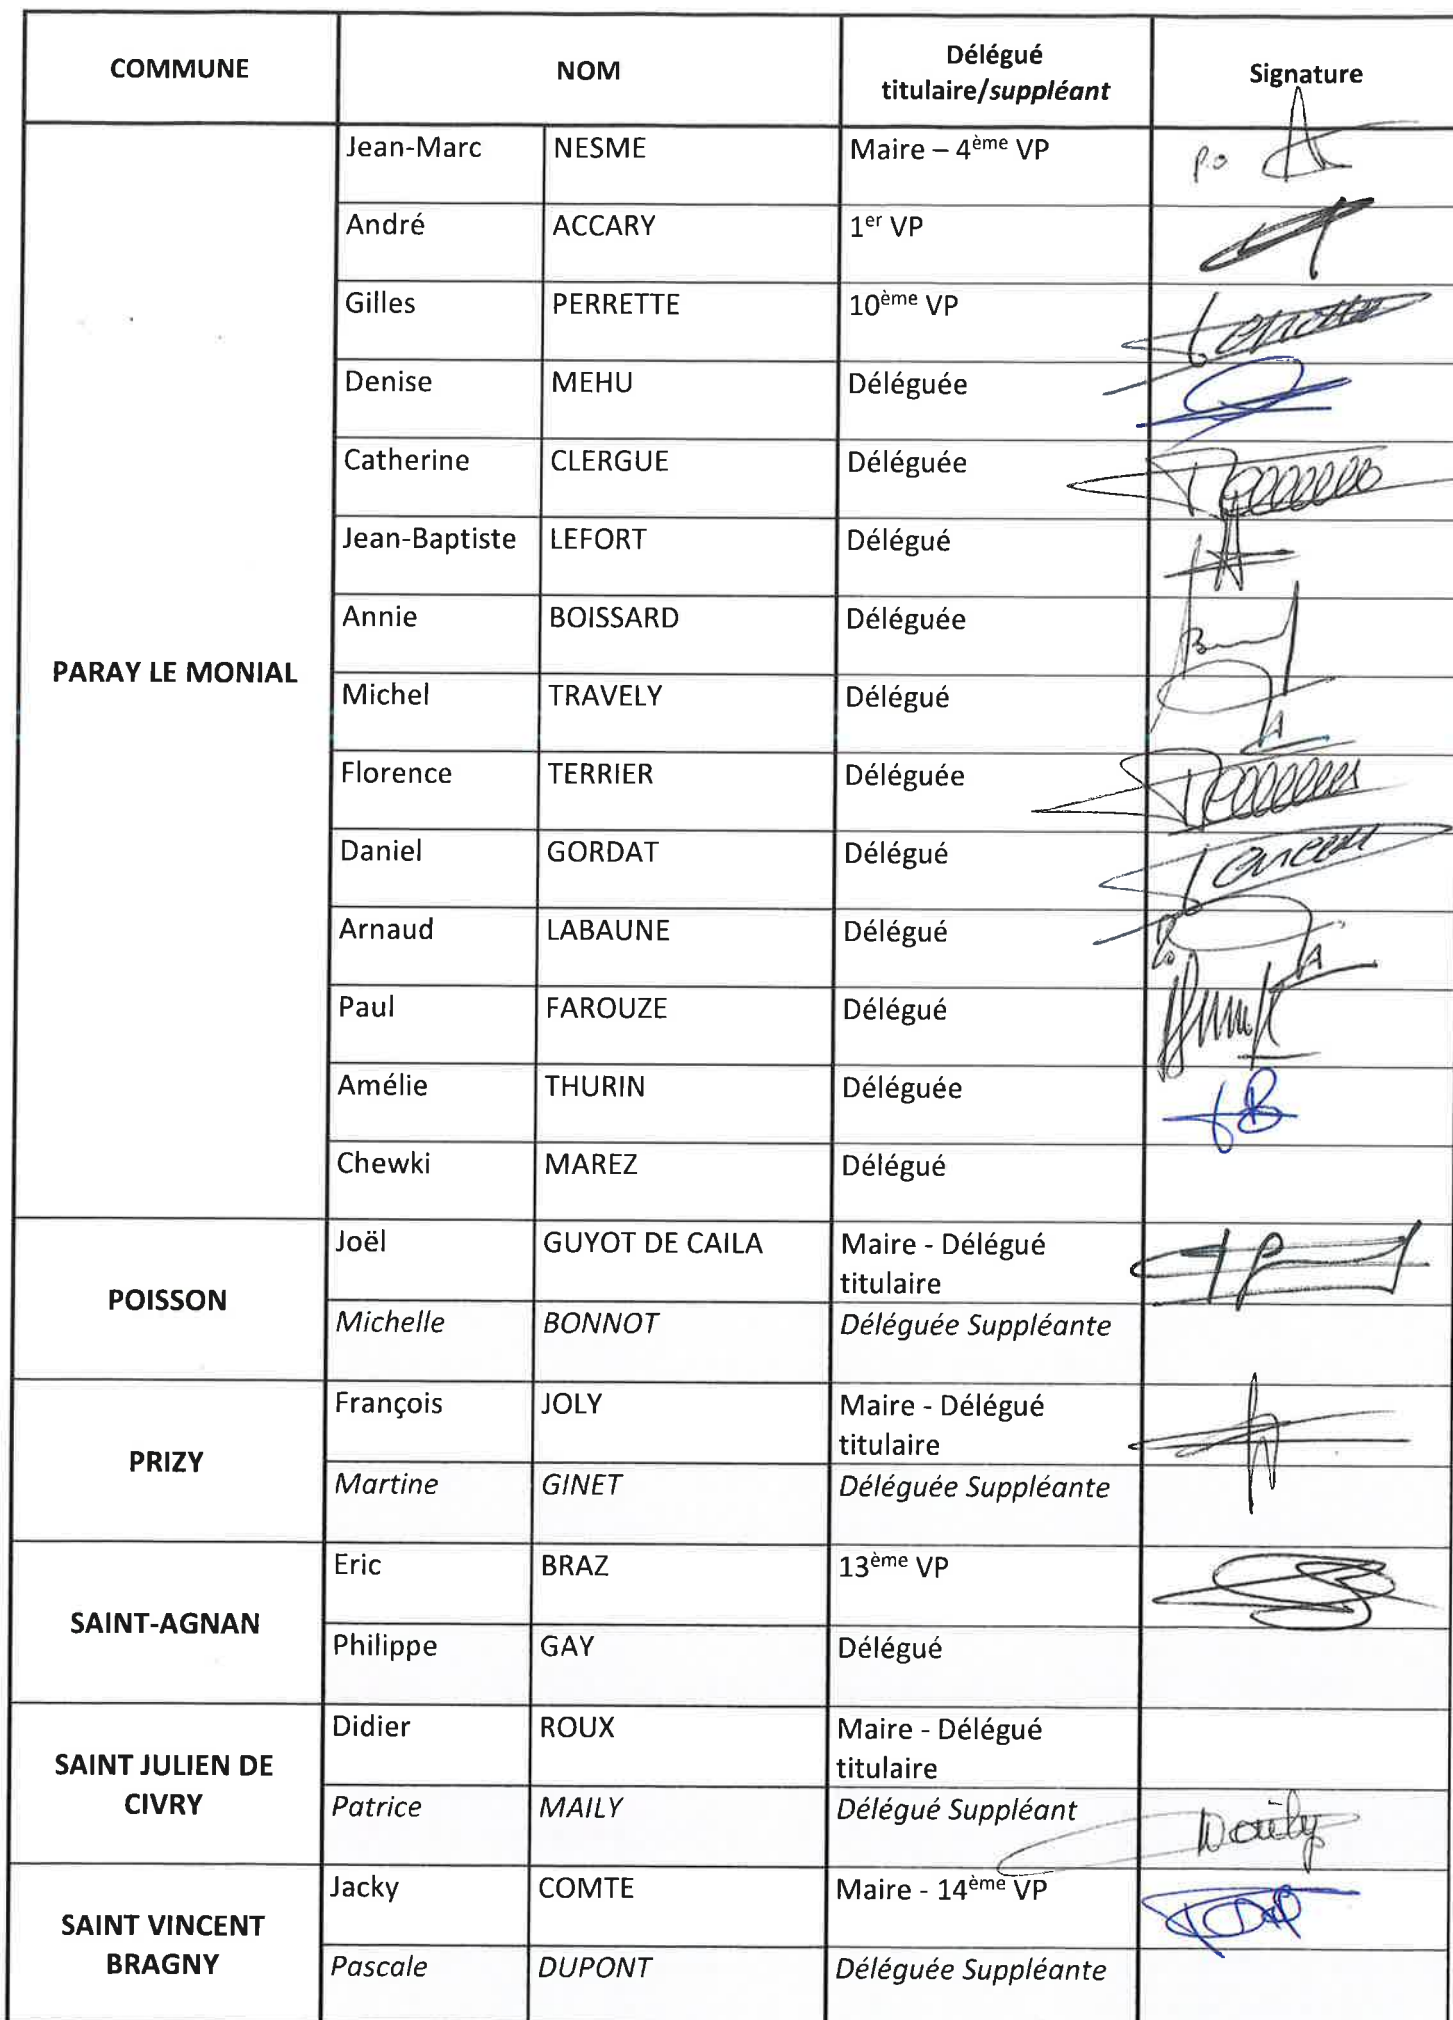 COMMUNE NOM Délégué titulaire/suppléant Signature
PARAY LE MONIAL
Jean-Marc NESME Maire – 4ème VP p.o
André ACCARY 1er VP
Gilles PERRETTE 10ème VP
Denise MEHU Déléguée
Catherine CLERGUE Déléguée
Jean-Baptiste LEFORT Délégué
Annie BOISSARD Déléguée
Michel TRAVELY Délégué
Florence TERRIER Déléguée
Daniel GORDAT Délégué
Arnaud LABAUNE Délégué
Paul FAROUZE Délégué
Amélie THURIN Déléguée
Chewki MAREZ Délégué
POISSON
Joël GUYOT DE CAILA Maire - Délégué titulaire
Michelle BONNOT Déléguée Suppléante
PRIZY
François JOLY Maire - Délégué titulaire
Martine GINET Déléguée Suppléante
SAINT-AGNAN
Eric BRAZ 13ème VP
Philippe GAY Délégué
SAINT JULIEN DE
CIVRY
Didier ROUX Maire - Délégué titulaire
Patrice MAILY Délégué Suppléant
SAINT VINCENT
BRAGNY
Jacky COMTE Maire - 14ème VP
Pascale DUPONT Déléguée Suppléante